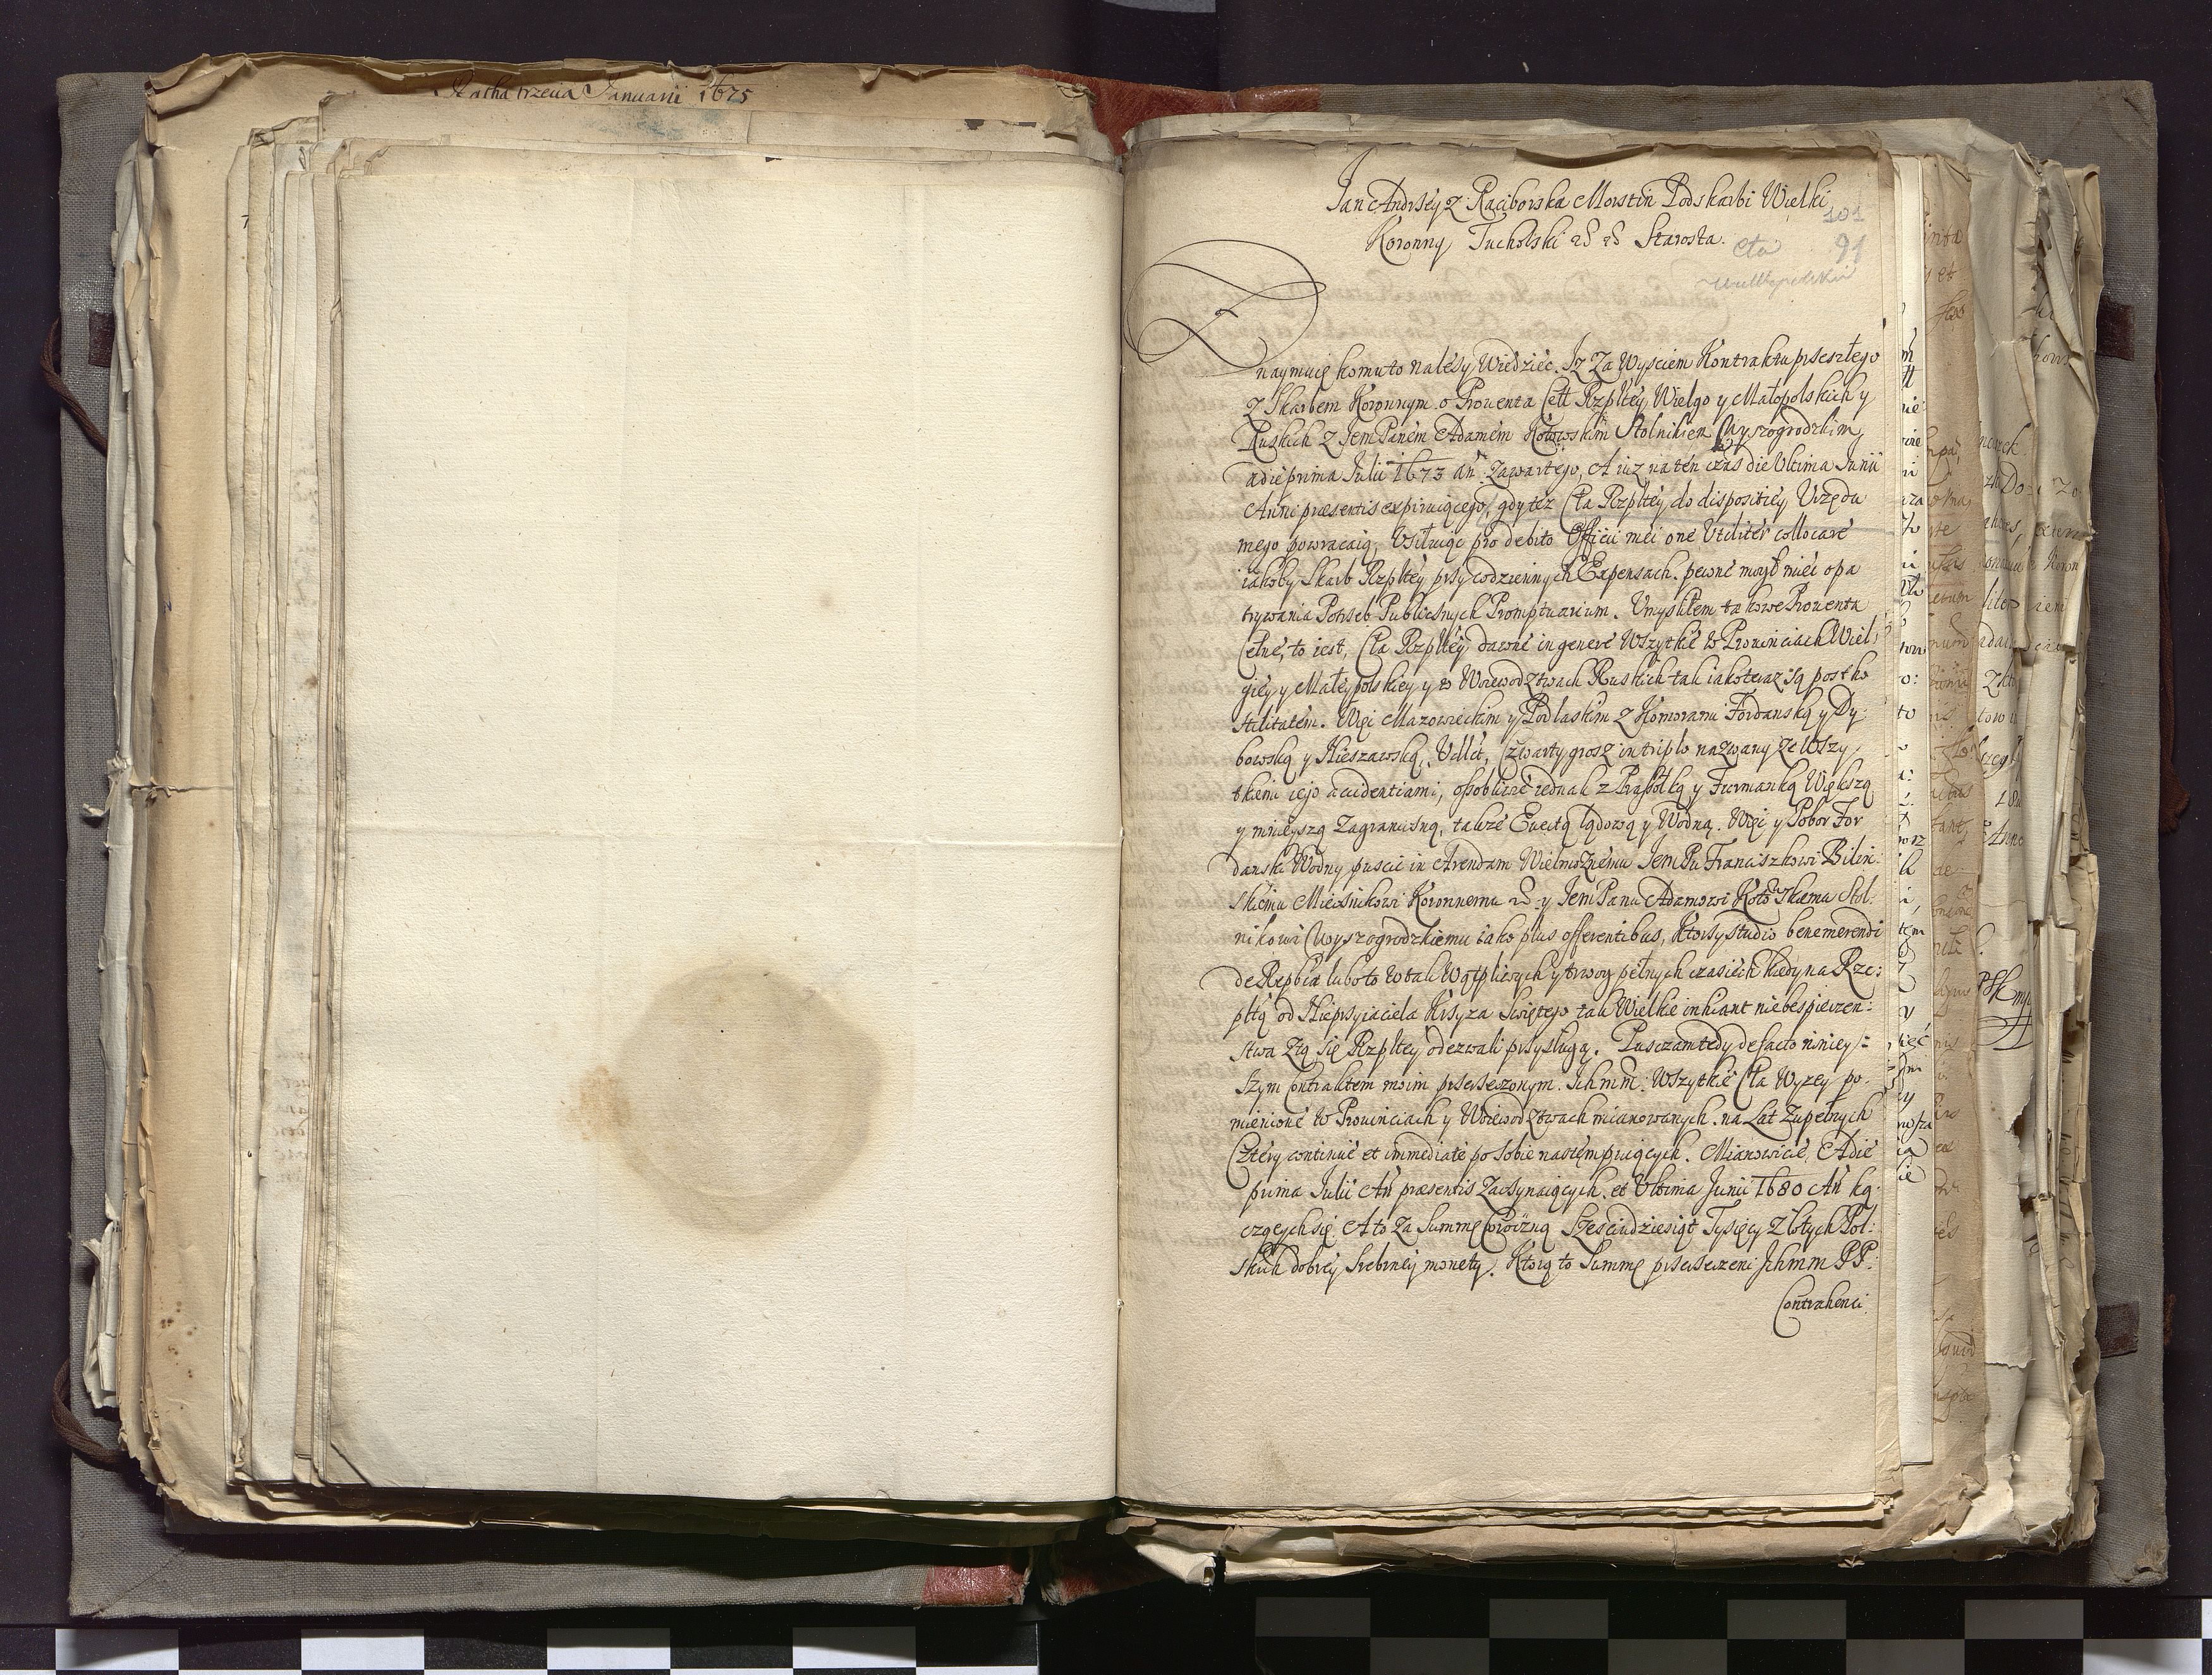 Ratha trzecia Januarii 1675
Jan Andrzey z Raciborska Morstin Podskarbi Wielki
Koronny Tucholski &c &c Starosta.
101
91
cła
wielkopolskie
Znaymuię komu to nalezy Wiedziéc. Iz Za Wysciem Kontraktu przeszłego
z Skarbem Koronnym o Prouenta Cełł Rzpltéy Wielgo y Małopolskich y
Ruskich z Jem Paném Adamém Kotowskim Stolnikiem Wyszogrodzkim
a die prima Julii 1673 an. Zawartego, A iuz na tén czas die Vltima Junii
Anni præsentis expiruiącego, gdy téz Cła Rzpltéy do dispositiéy Vrzędu
mego powracaią, Vsiłuiąc pro debito Officii méi oné Vtilitér collocaré
iakoby Skarb Rzpltéy przy codziennych Expensach pewné mogł miéć opa
trywania Potrzeb Publicznych Promptuarium. Vmyśliłem takowe Prouenta
Celné, to iest, Cła Rzpltéy dawné in generé Wszytkié w Prouinciach Wiel
giéy y Małéypolskiey y w Woiewodztwach Ruskich tak iako teraz są post ho
stilitatém. Więc Mazowieckim y Podlaskim z Komorami Fordanską y Dy
bowską y Nieszawską, Vidlt, Czwarty grosz in triplo nazwany ze Wszy
tkiemi iego accidentiami, osobliwié iednak z Prasołką y Furmanką Większą
y mnieyszą Zagraniczną, takze Euectą lądową y Wodną. Więc y Pobor For
danski Wodny puscic in Arendam Wielmoznému Jem Pu Franciszkowi Bilin
skiému Miecznikowi Koronnemu &c y Jem Panu Adamowi Kotowskiemu Stol
nikowi Wyszogrodzkiemu iako plus offerentibus, Ktorzy studio bene merendi
de Repbca lubo to w tak Wątpliwych y trwog pełnych czasiéch kiedy na Rze:
pltą od Nieprzyiaciela Krzyza Swiętego tak Wielkié inhiant niebespieczen:
stwa Zą się Rzpltéy odezwali przysługą. Pusczam tedy de facto niniey:
szym Contraktem moim przerzeczonym Ichmm. Wszytkié Cła Wyzey po-
mienioné w Prouinciach y Woiewodztwach mianowanych na Lat Zupełnych
Cztéry continué et immediaté po sobie nastempuiących. Mianowicié A dié
prima Julii An præsentis Zaczynaiących, et Vltima Junii 1680 An ką
czących się. A to Za Summę Sześćdziesiąt Tysięcy Złotych Pol:
skich dobréy Srebrnéy monéty. Ktorą to Summę przerzeczeni Ichmm PP.
Contrahenci